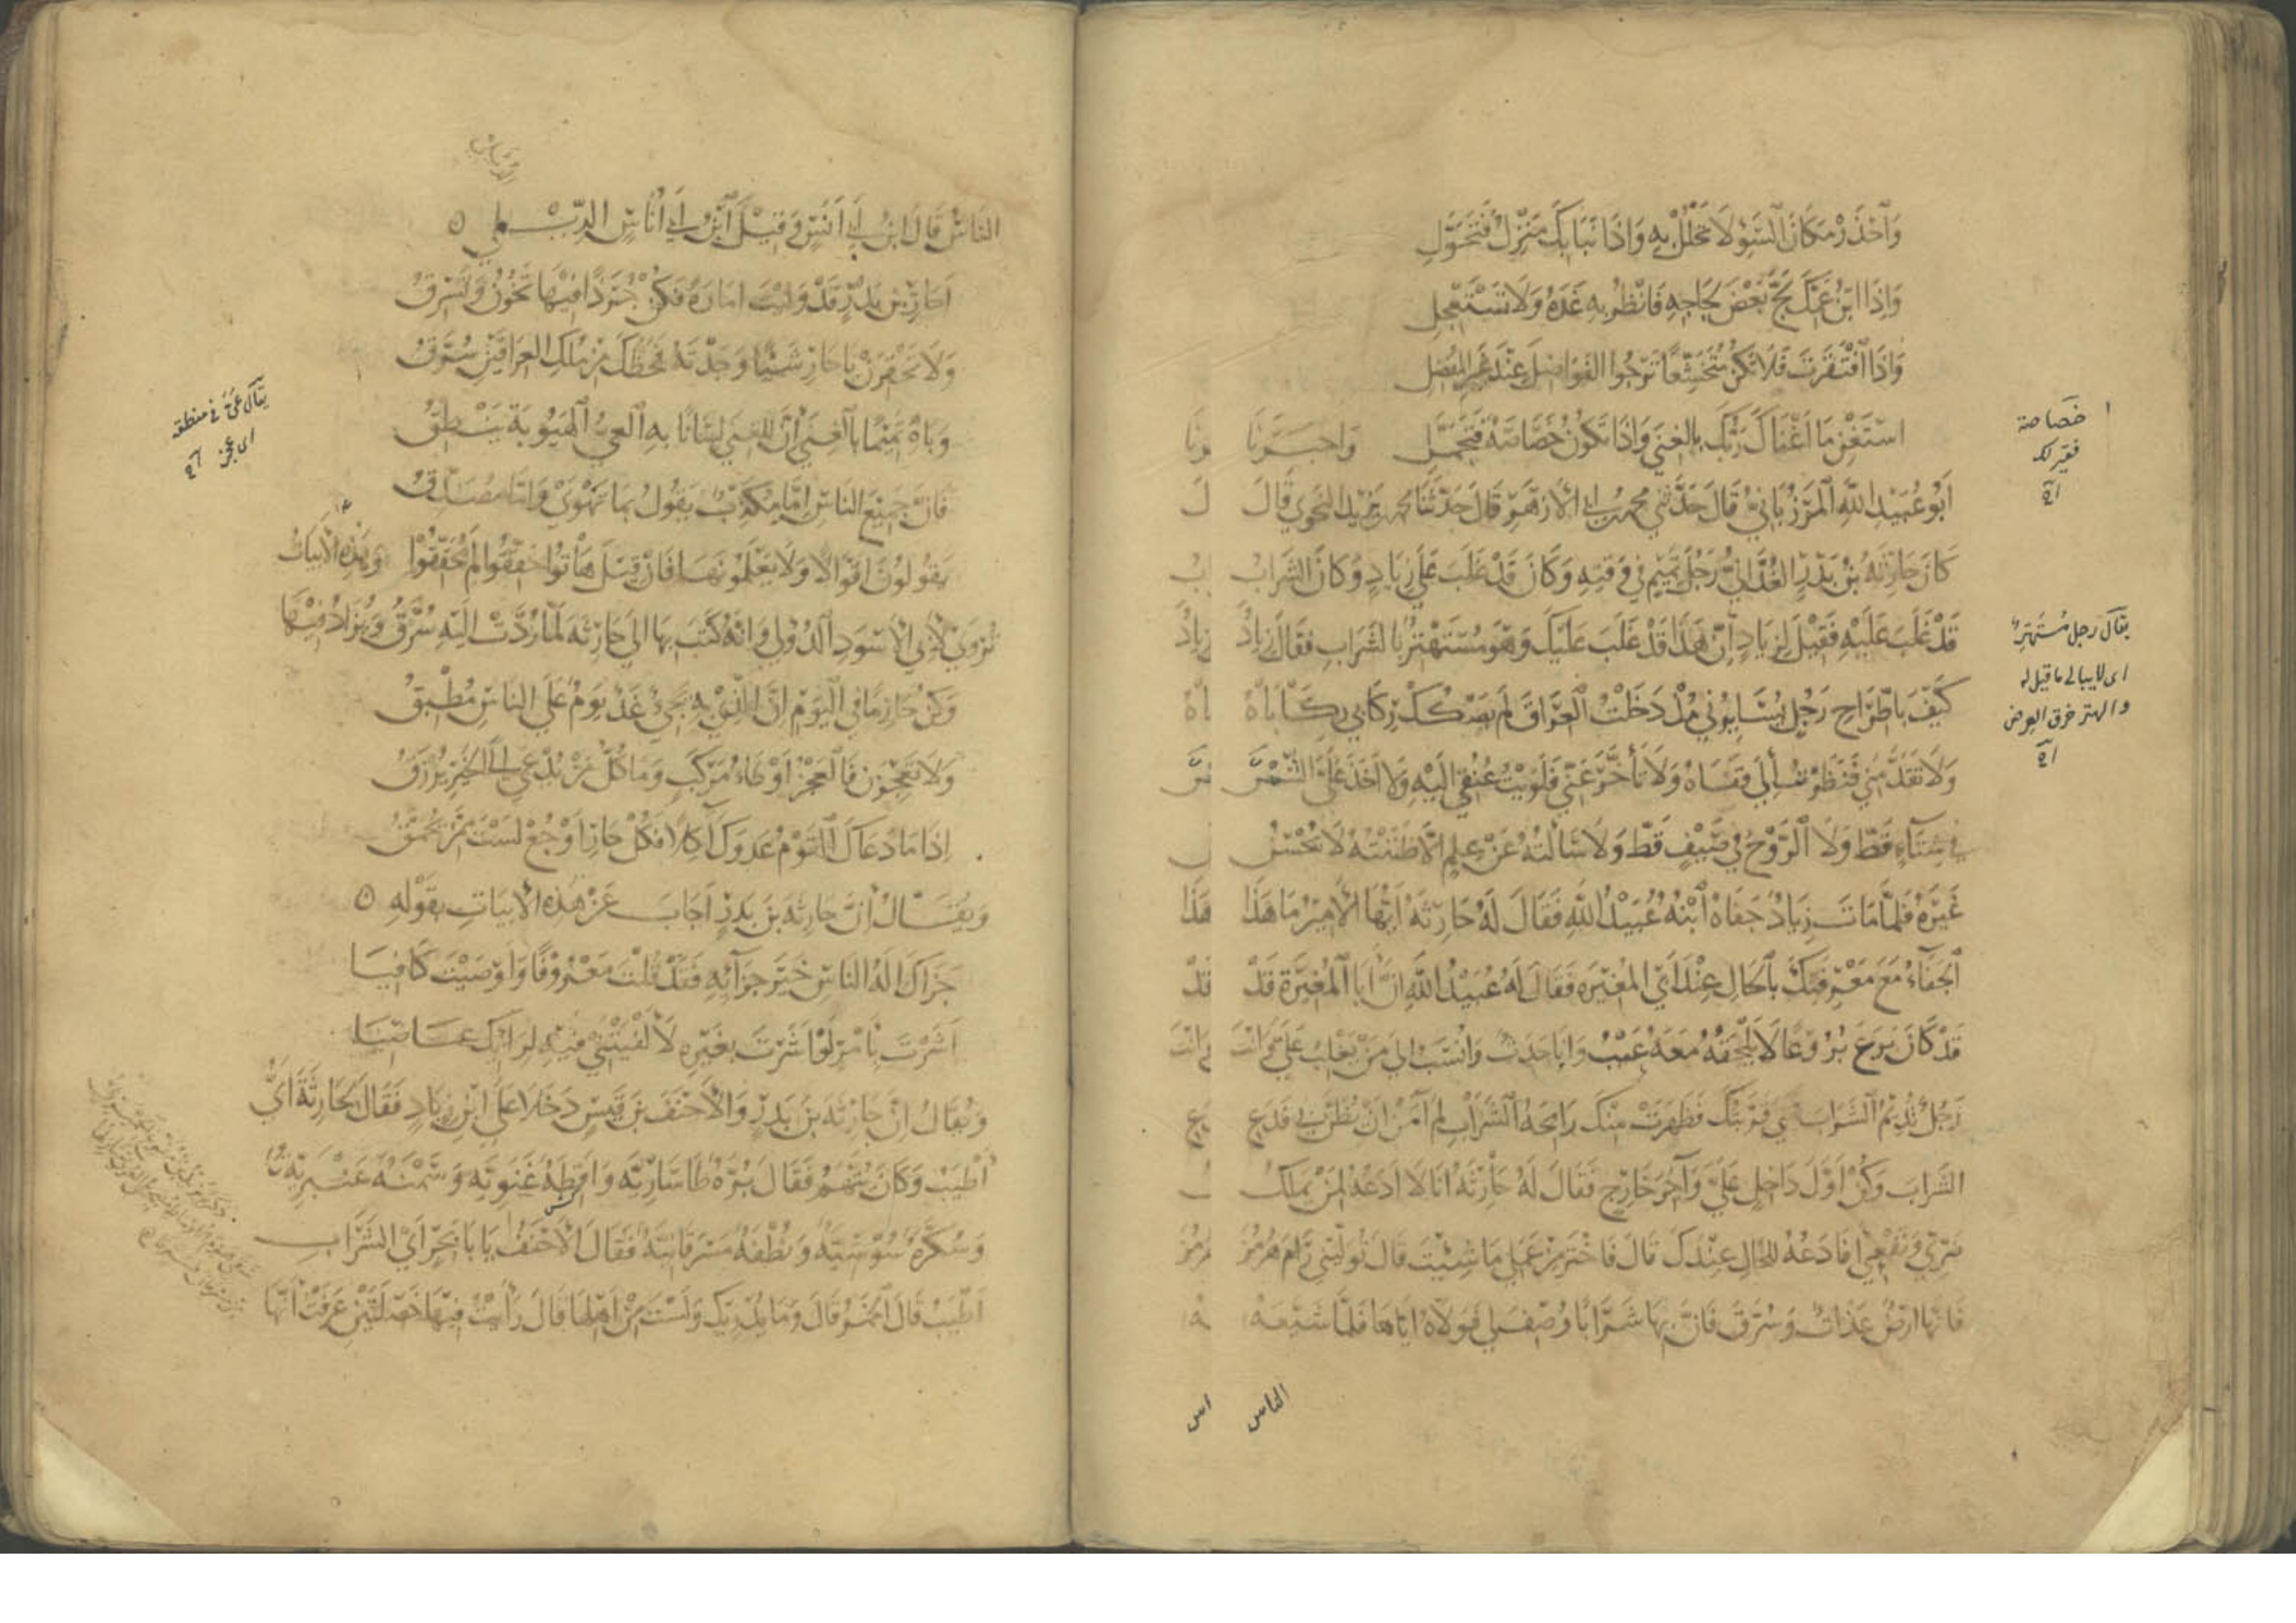 وَٱحْذَرْ مَكَانَ ٱلسَّوْءِ لَا تَحْلُلْ بِهِ وَإِذَا نَبَا بِكَ مَنْزِلٌ فَتَحَوَّلِ
وَإِذَا ابْنُ عَمِّكَ لَجَّ بَعْضَ لَجَاجِهِ فَانْظُرْ بِهِ غَدَهُ وَلَا تَسْتَعْجِلِ
وَإِذَا افْتَقَرْتَ فَلَا تَكُنْ مُتَخَشِّعًا تَرْجُوا الفَوَاضِلَ عِنْدَ غَيْرِ المُفْضِلِ
اسْتَغْنِ مَا أَغْنَاكَ رَبُّكَ بِالغِنَى وَإِذَا تَكُونُ خَصَاصَةٌ فَتَجَمَّلِ وَاخبَرَنَا
أَبُو عُبَيْدِ اللهِ المَرْزُبَانِيُّ قَالَ حَدَّثَنِي مُحَمَّدُ بْنُ أَبِي الأَزْهَرِ قَالَ حَدَّثَنَا مُحَمَّدُ بْنُ يَزِيدَ النَّحْوِي قَالَ
كَانَ حَارِثَةُ بْنُ بَدْرٍ الغُدَانِيُّ رَجُلَ تَمِيمٍ فِي وَقْتِهِ وَكَانَ قَدْ غَلَبَ عَلَى زِيَادٍ وَكَانَ الشَّرَابُ
قَدْ غَلَبَ عَلَيْهِ فَقِيلَ لِزِيَادٍ إِنَّ هَذَا قَدْ غَلَبَ عَلَيْكَ وَهُوَ مُسْتَهْتِرٌ بِالشَّرَابِ فَقَالَ زِيَادٌ
كَيْفَ بِاطِّرَاحِ رَجُلٍ يُسَايِرُنِي مُذْ دَخَلْتُ العِرَاقَ لَمْ يَصْكُكْ رِكَابِي رِكَابَاهُ
وَلَا تَقَدَّمَنِي فَنَظَرْتُ إِلَى قَفَاهُ وَلَا تَأَخَّرَ عَنِّي فَلَوَيْتُ عُنُقِي إِلَيْهِ وَلَا أَخَذَ عَلَيَّ الشَّمْسَ
فِي شِتَاءٍ قَطُّ وَلَا الرَّوْحَ فِي صَيْفٍ قَطُّ وَلَا سَأَلْتُهُ عَنْ عِلْمٍ إِلَّا ظَنَنْتُهُ لَا يُحْسِنُ
غَيْرَهُ فَلَمَّا مَاتَ زِيَادٌ جَفَاهُ ابْنُهُ عُبَيْدُ اللهِ فَقَالَ لَهُ حَارِثَةُ أَيُّهَا الأَمِيرُ مَا هَذَا
الجَفَاءُ مَعَ مَعْرِفَتِكَ بِالحَالِ عِنْدَ أَبِي المُغِيرَةِ فَقَالَ لَهُ عُبَيْدُ اللهِ إِنَّ أَبَا المُغِيرَةِ قَدْ
قَدْ كَانَ بَرَعَ بُرُوعًا لَا يَلْحَقُهُ مَعَهُ عَيْبٌ وَأَنَا حَدَثٌ وَأُنْسَبُ إِلَى مَنْ يَغْلِبُ عَلَيَّ وَأَنْتَ
رَجُلٌ تُدِيمُ الشَّرَابَ فَمَتَى قَرَّبْتُكَ فَظَهَرَتْ مِنْكَ رَائِحَةُ الشَّرَابِ لَمْ آمَنْ أَنْ يُظَنَّ بِي فَدَعِ
الشَّرَابَ وَكُنْ أَوَّلَ دَاخِلٍ عَلَيَّ وَآخِرَ خَارِجٍ فَقَالَ لَهُ حَارِثَةُ أَنَا لَا أَدَعُهُ لِمَنْ يَمْلِكُ
ضَرِّي وَنَفْعِي أَفَأَدَعُهُ لِلْحَالِ عِنْدَكَ قَالَ فَاخْتَرْ مِنْ عَمَلِي مَا شِئْتَ قَالَ تُوَلِّينِي رَامَهُرْمُزَ
فَإِنَّهَا أَرْضٌ عَذَاةٌ وَسُرَّقَ فَإِنَّ بِهَا شَرَابًا وُصِفَ لِي فَوَلَّاهُ إِيَّاهَا فَلَمَّا شَيَّعَهُ
الناس
خصاصة
فقيرلك
يقال رجل مُستهتر
اى لا يبالى ما قيل له
والهتر خرق العرض
النَّاسُ قَالَ ابْنُ أَبِي أَنَسٍ وَقِيلَ ابْنُ أَبِي أُنَاسٍ الدِّيْلِي
أَحَارِ بْنَ بَدْرٍ قَدْ وَلِيتَ إِمَارَةً فَكُنْ جُرَذًا فِيهَا تَخُونُ وَتَسْرِقُ
وَلَا تَحْقِرَنْ يَا حَارِ شَيْئًا وَجَدْتَهُ فَحَظُّكَ مِنْ مُلْكِ العِرَاقَيْنِ سُرَّقُ
وَبَاهِ تَمِيمًا بِالغِنَى إِنَّ لِلْغِنَى لِسَانًا بِهِ العَيُّ الهَيُوبَةُ يَنْطِقُ
فَإِنَّ جَمِيعَ النَّاسِ إِمَّا مُكَذِّبٌ يَقُولُ بِمَا تَهْوَى وَإِمَّا مُصَدِّقُ
يَقُولُونَ أَقْوَالًا وَلَا يَعْلَمُونَهَا فَإِنْ قِيلَ هَاتُوا حَقِّقُوا لَمْ يُحَقِّقُوا وَهَذِهِ الأَبْيَاتُ
تُرْوَى لِأَبِي الأَسْوَدِ الدُّؤَلِي وَإِنَّهُ كَتَبَ بِهَا إِلَى حَارِثَةَ لَمَّا رُدَّتْ إِلَيْهِ سُرَّقُ وَيُزَادُ فِيهَا
وَكُنْ حَازِمًا فِي اليَوْمِ إِنَّ الَّذِي بِهِ يَجِيءُ غَدٌ يَوْمٌ عَلَى النَّاسِ مُطْبِقُ
وَلَا تَعْجِزَنْ فَالعَجْزُ أَوْطَاءُ مَرْكَبٍ وَمَا كُلُّ مَنْ يُدْعَى إِلَى الخَيْرِ يُرْزَقُ
إِذَا مَا دَعَاكَ القَوْمُ عَدُّوكَ آكِلًا فَكُلْ حَارِ أَوْ جُعْ لَسْتَ مِمَّنْ يُحَمَّقُ
وَيُقَالُ إِنَّ حَارِثَةَ بْنَ بَدْرٍ أَجَابَ عَنْ هَذِهِ الأَبْيَاتِ بِقَوْلِهِ
جَزَاكَ إِلَهُ النَّاسِ خَيْرَ جَزَائِهِ فَقَدْ قُلْتَ مَعْرُوفًا وَأَوْصَيْتَ كَافِيَا
أَشَرْتَ بِأَمْرٍ لَوْ أَشَرْتَ بِغَيْرِهِ لَأَلْفَيْتَنِي فِيهِ لِرَأْيِكَ عَاصِيَا
وَيُقَالُ إِنَّ حَارِثَةَ بْنَ بَدْرٍ وَالأَحْنَفَ بْنَ قَيْسٍ دَخَلَا عَلَى ابْنِ زِيَادٍ فَقَالَ لِحَارِثَةَ أَيُّ
أَطْيَبُ وَكَانَ يُتَّهَمُ فَقَالَ بُرَّةٌ طَاسَارِيَّةٌ وَأَقِطَةٌ غَنَوِيَّةٌ وَسَمْنَةٌ عَنْبَرِيَّةٌ
وَسُكَّرَةٌ سُوسِيَّةٌ وَنُطْفَةٌ مَسْرَقَانِيَّةٌ فَقَالَ الأَحْنَفُ يَا أَبَا بَحْرٍ أَيُّ الشَّرَابِ
أَطْيَبُ قَالَ الخَمْرُ قَالَ وَمَا يُدْرِيكَ وَلَسْتَ مِنْ أَهْلِهَا قَالَ رَأَيْتُ فِيهَا خَصْلَتَيْنِ عَرَفْتُ أَنَّهَا
يقال عَىَّ فى منطقه
اى عجز